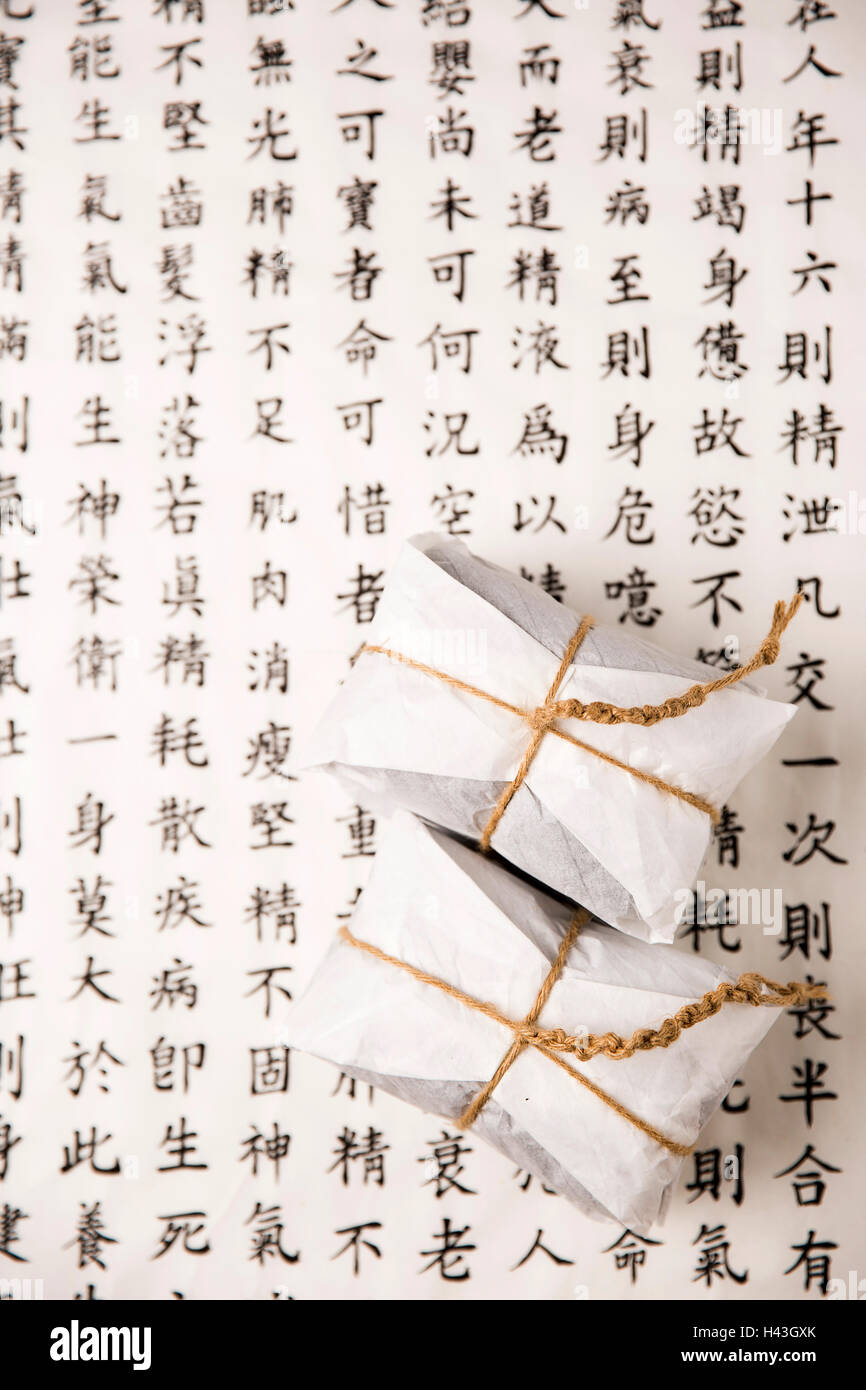 在人年十六則精泄凡交一次則喪半合有
益則精竭身憊故慾不 精耗 則氣
氣衰則病至則身危噫 命
而老道精液爲以精 人
紹嬰尚未可何況空 衰老
人之可寶者命可惜者 重 肝精不
無光肺精不足肌肉消瘦堅精不固神氣
精不堅齒髮浮落若眞精耗散疾病卽生死
能生氣氣能生神榮衛一身莫大於此養
寶其精精滿則氣壯氣壯則神旺則身健
alamy
Image ID: H43GXK
www.alamy.com